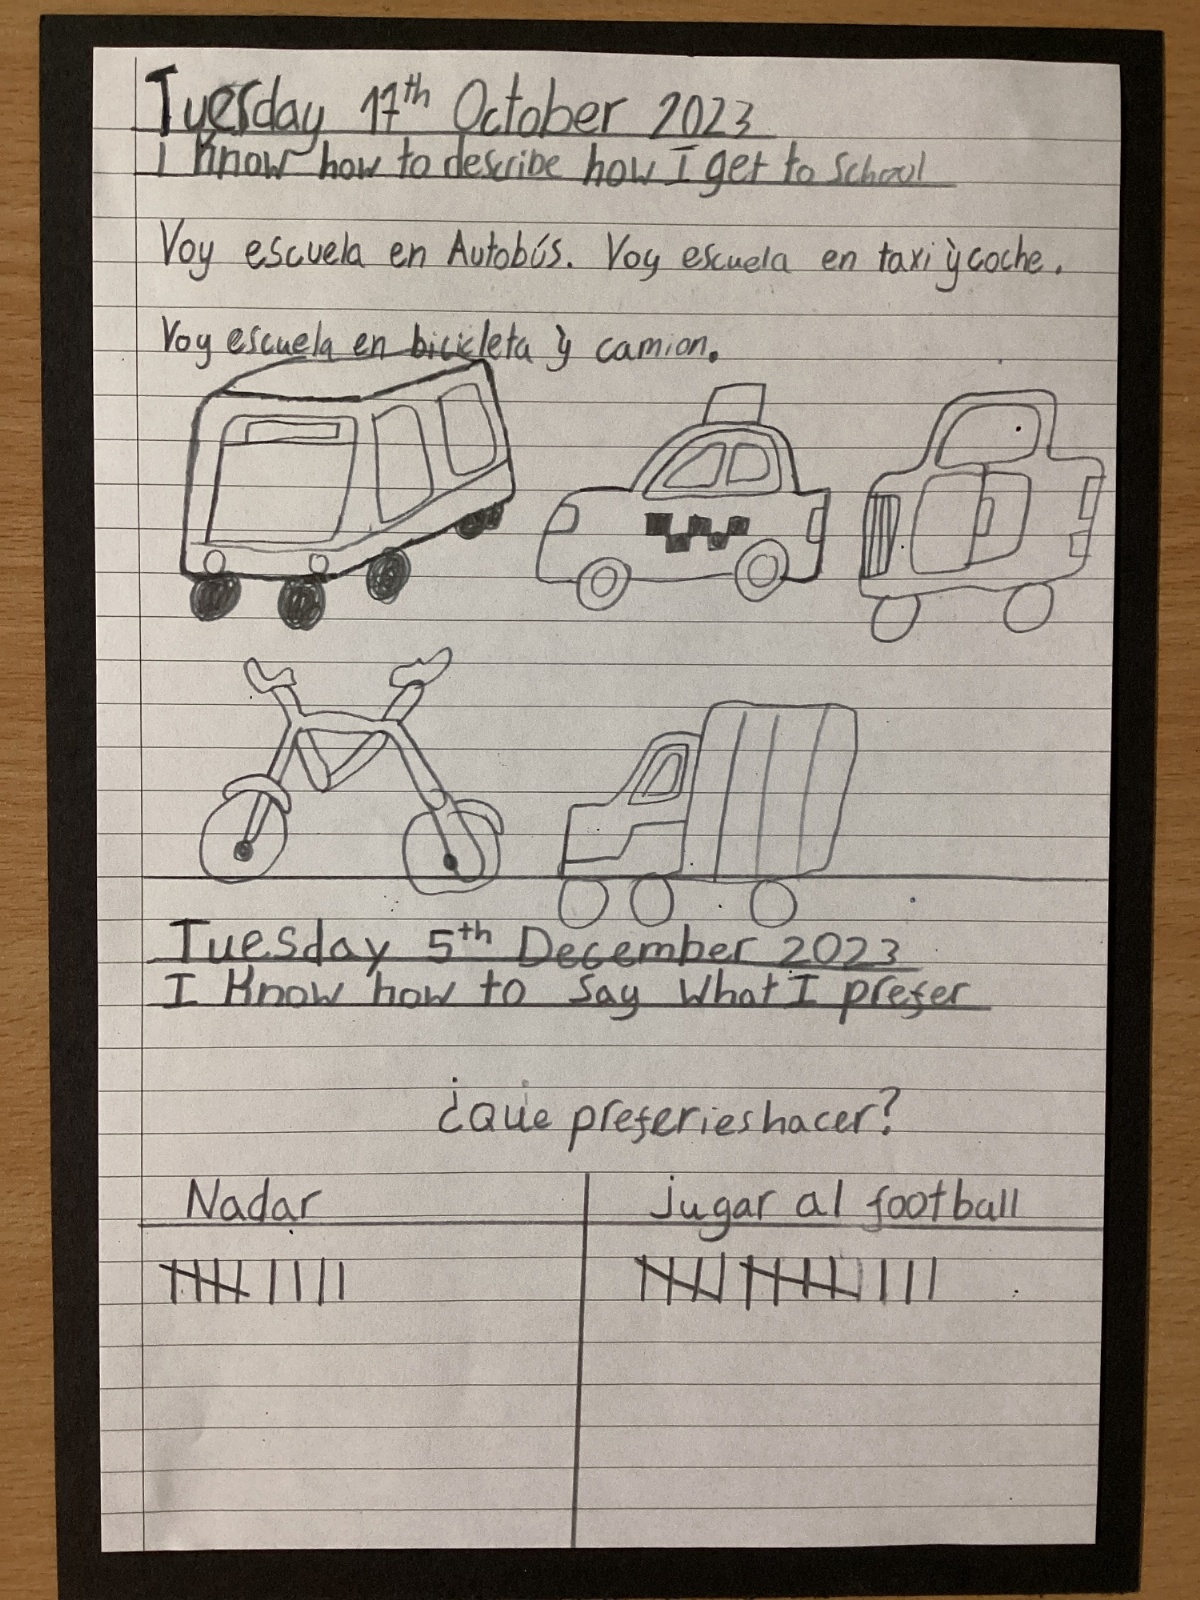 Tuesday 17th October 2023
I Know how to describe how I get to School
Voy escuela en Autobús. Voy escuela en taxi ẏ coche.
Voy escuela en bicicleta ẏ camion.
Tuesday 5th December 2023
I Know how to Say What I prefer
¿Que preferies hacer?
Nadar
jugar al football